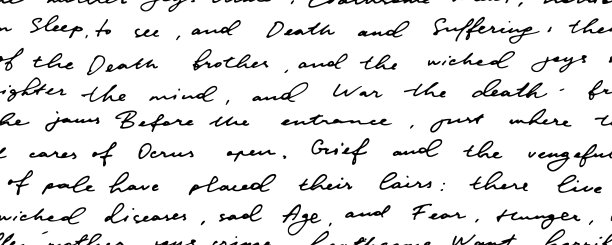 Sleep, to see, and Death and Suffering, the
of the Death brother, and the wicked joys
ighter the mind, and War the death - fr
he jaws Before the entrance, just where t
cares of Orcus open. Grief and the vengeful
of pale have placed their lairs: there live
wicked diseases, sad Age, and Fear, Hunger,
mother joys crime, loathsome Want, horri